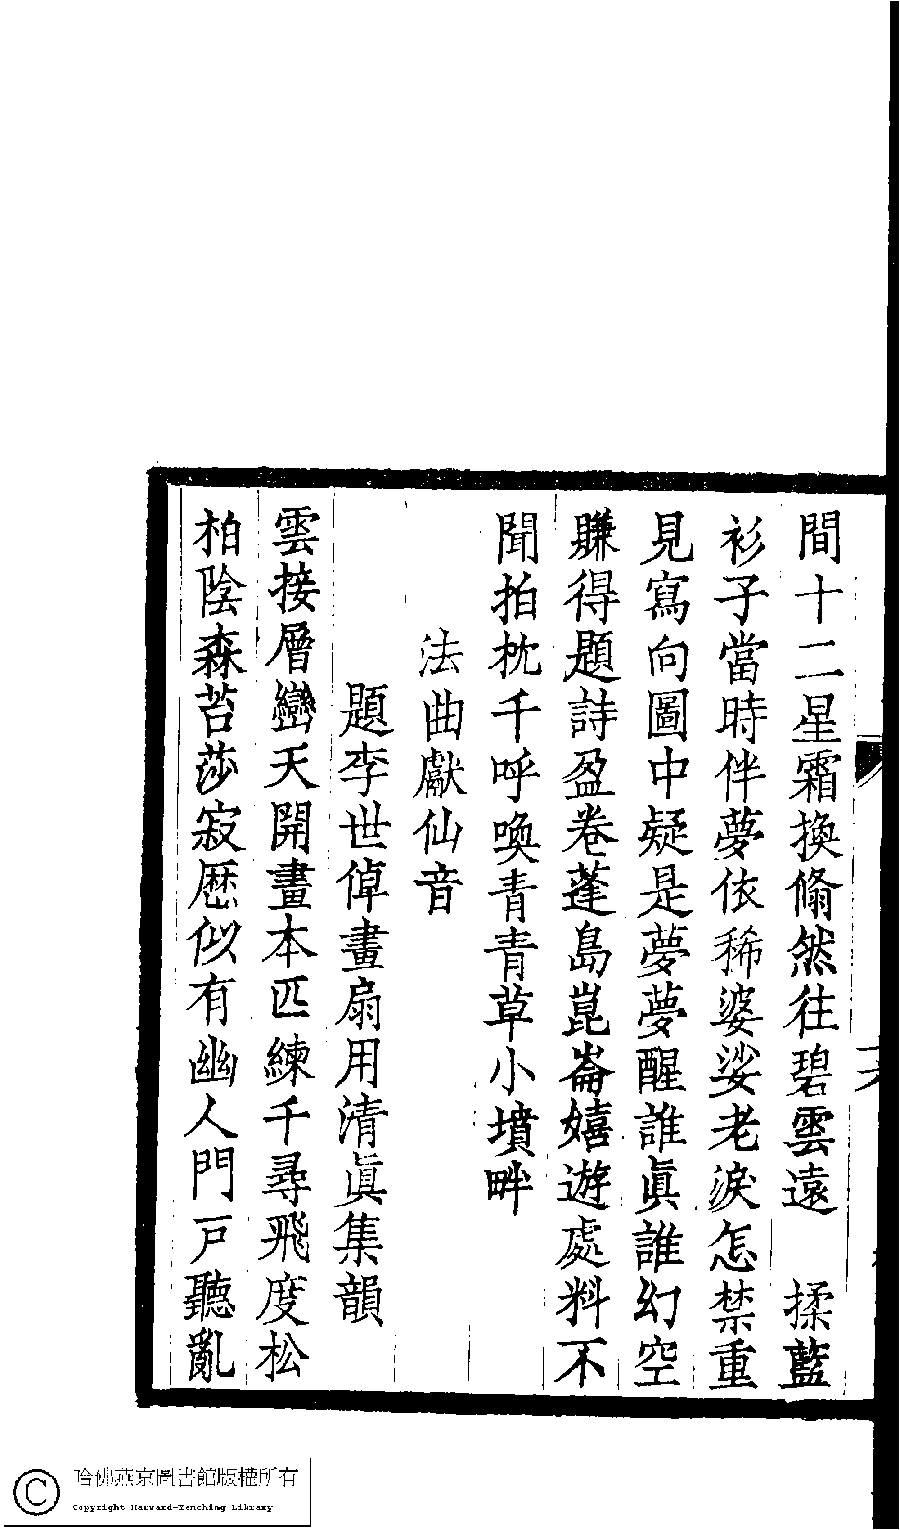 間十二星霜換翛然往碧雲遠　揉藍
衫子當時伴夢依稀婆娑老淚怎禁重
見寫向圖中疑是夢夢醒誰眞誰幻空
賺得題詩盈卷蓬島崑崙嬉遊處料不
聞拍枕千呼喚青青草小墳畔
法曲獻仙音
題李世倬畫扇用清眞集韻
雲接層巒天開畫本匹練千尋飛度松
柏陰森苔莎寂歷似有幽人門戸聽亂
哈佛燕京圖書館版權所有
Copyright Harvard-Yenching Library